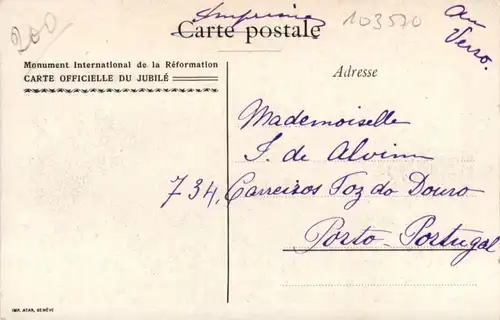 200
Imprimé
103570
Au
Verso.
Carte postale
Monument International de la Réformation
CARTE OFFICIELLE DU JUBILÉ
Adresse
Mademoiselle
J. de Alvim
734, Carreiros Foz do Douro
Porto-Portugal
IMP. ATAR, GENÈVE